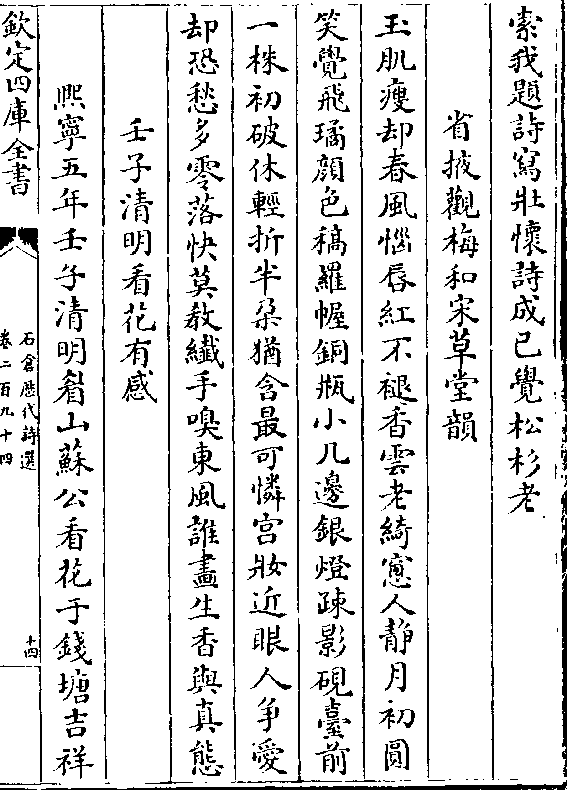 索我題詩寫壯懷詩成已覺松杉老
省掖觀梅和宋草堂韻
玉肌瘦却春風惱唇紅不褪香雲老綺窓人静月初圓
笑覺飛璚顔色稿羅幄銅瓶小几邊銀燈疎影硯臺前
一株初破休輕折半朶猶含最可憐宫妝近眼人争愛
却恐愁多零落快莫教纎手嗅東風誰畫生香與真態
壬子清明看花有感
熙寧五年壬子清明眉山蘇公看花于錢塘吉祥
欽定四庫全書
石倉歴代詩選
卷二百九十四
十四